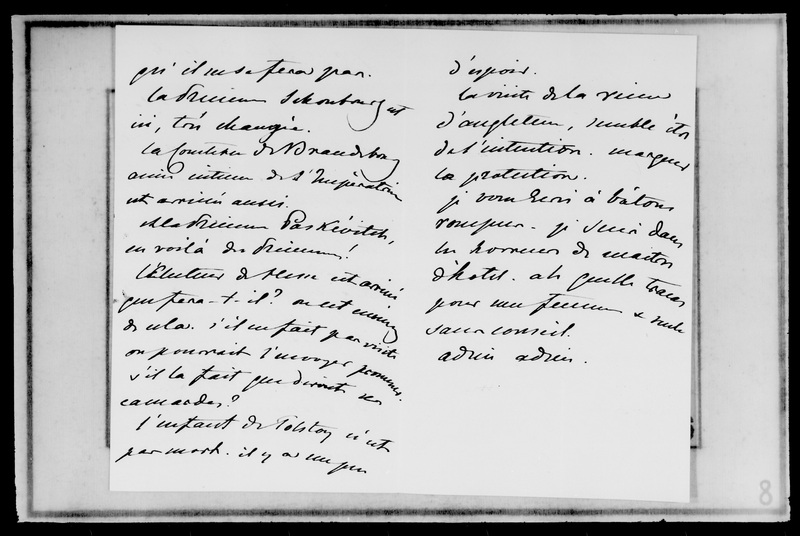 qu'il ne se fera pas.
la Princesse Schonbourg est
ici, très changée.
la Comtesse de Brandebourg
amie intime de l'Impératrice
est arrivée aussi.
et la Princesse Paskévitch,
en voilà des Princesses!
l'Electeur de Hesse est arrivé
que fera-t-il? on est ennuyé
de cela. s'il ne fait pas visite
on pourrait l'envoyer promener.
s'il la fait que diront ses
camardes?
l'enfant de Tolstoy n'est
pas mort. il y a un peu
d'espoir.
la visite de la reine
d'angleterre, semble être
de l'intention. marquer
la protection.
je vous écris à bâtons
rompus. je suis dans
les horreurs de maitre
d'hotel. ah quelle tracas
pour une femme & seule
sans conseil.
adieu adieu.
8